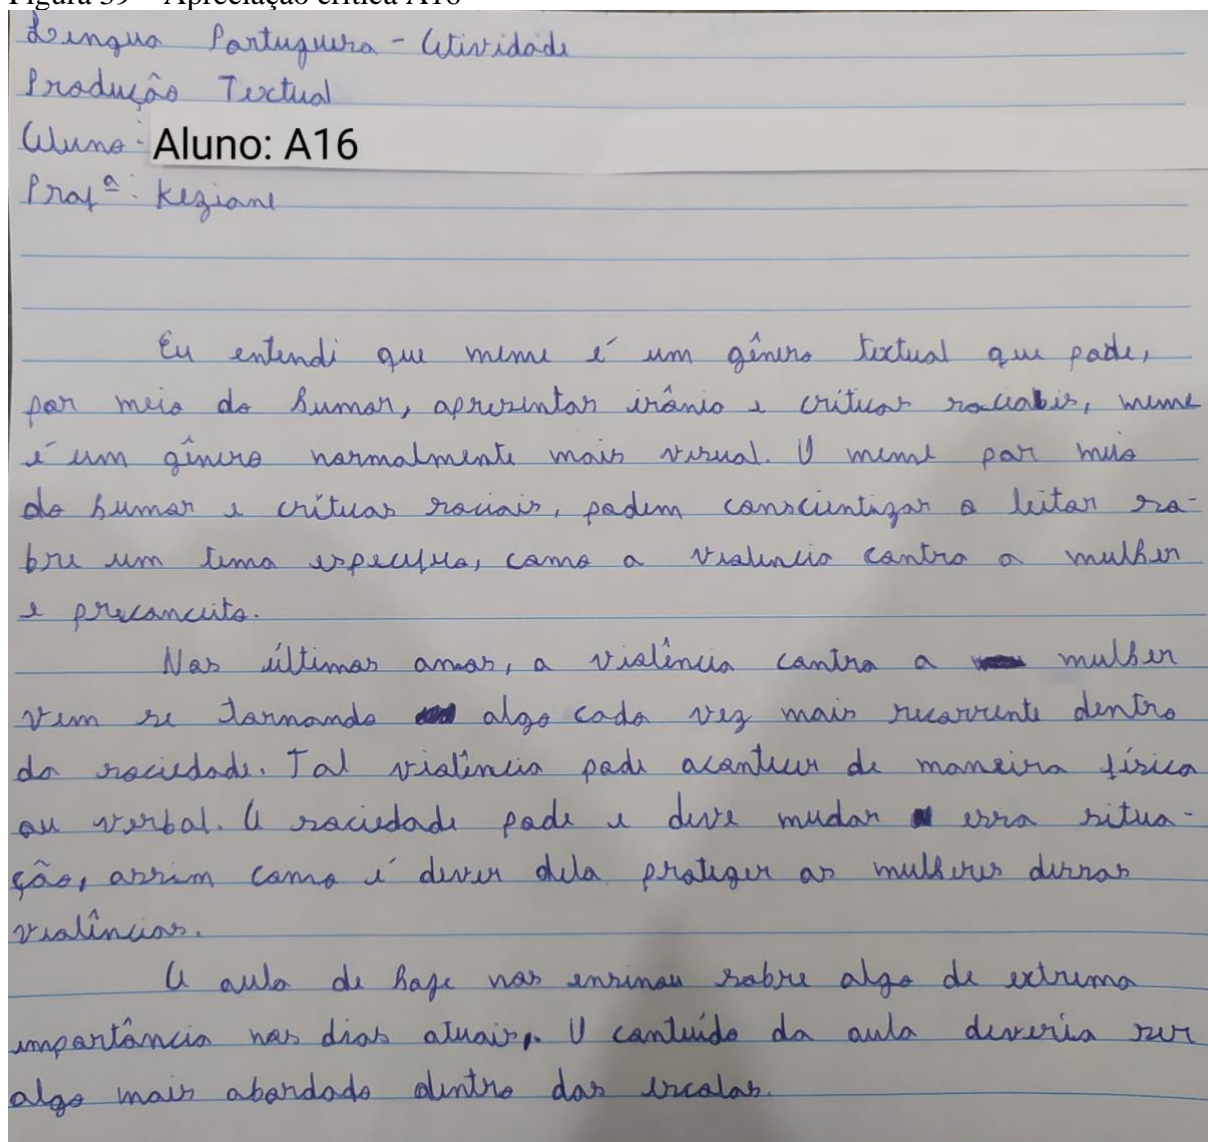 Figura 39 – Apreciação crítica A16
Língua Portuguesa - Atividade
Produção Textual
Aluno: Aluno: A16
Profª: Keziane
Eu entendi que meme é um gênero textual que pode,
por meio do humor, apresentar irônia e críticas sociais, meme
é um gênero normalmente mais visual. O meme por meio
do humor e críticas sociais, podem conscientizar o leitor so-
bre um tema específico, como a violencia contra a mulher
e preconceito.
Nos últimos anos, a violência contra a mulher
vem se tornando algo cada vez mais recorrente dentro
da sociedade. Tal violência pode acontecer de maneira física
ou verbal. A sociedade pode e deve mudar essa situa-
ção, assim como é dever dela proteger as mulheres dessas
violências.
A aula de hoje nos ensinou sobre algo de extrema
importância nos dias atuais. O conteúdo da aula deveria ser
algo mais abordado dentro das escolas.